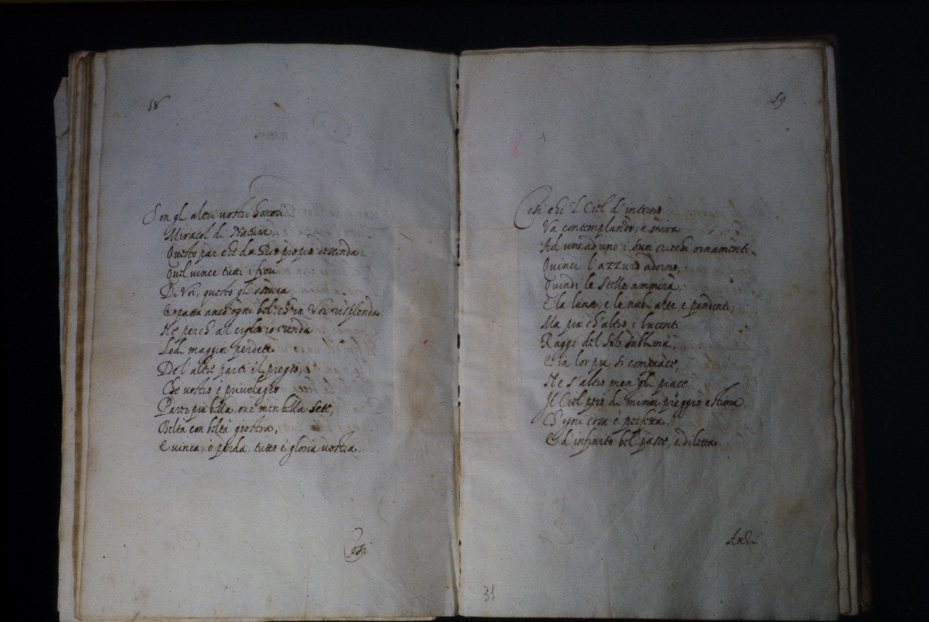 58
Son gl'altri vostri honori
Miracol di Natura,
Questo par che da Dio proprio descenda.
Quel vince tutti i fiori
Di Voi, questo gl'oscura
E passa anch'ogni bel, ch'in Voi risplenda
Ne perch'al ciglio io renda
Lodi maggior perdete
De l'altre parti il pregio,
Che vostro è privilegio
Parer più bella, ove men bella sete,
Beltà con beltà giostra,
E vinca, o perda, tutto è gloria vostra.
Cosi
59
Cosi chi 'l Ciel d'intorno
Va contemplando, e mira
Ad uno ad uno i suoi ornamenti.
Quinci l'azzurro adorno,
Quindi le stelle ammira,
E la luna, e le nubi alte e pendenti,
Ma più ch'altro i lucenti
Raggi del Sol sublima
E in lor più si compiace,
Ne s'altro men gli piace
Il Ciel però di minor pregio estima,
Ch'ogni cosa è perfetta,
Ed infinito bel pasce, e diletta.
31